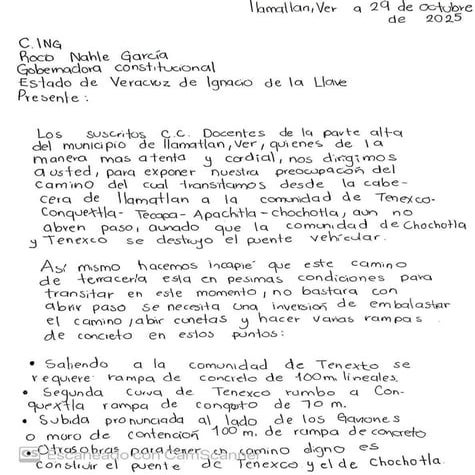 Ilamatlan, Ver a 29 de octubre
de 2025
C. ING
Rocio Nahle García
Gobernadora constitucional
Estado de Veracruz de Ignacio de la Llave
Presente:
Los suscritos C.C. Docentes de la parte alta
del municipio de Ilamatlan, Ver, quienes de la
manera mas atenta y cordial, nos dirigimos
a usted, para exponer nuestra preocupación del
camino del cual transitamos desde la cabe-
cera de Ilamatlan a la comunidad de Tenexco-
Conquextla- Teoapa- Apachtla- chochotla, aun no
abren paso, aunado que la comunidad de Chochotla
y Tenexco se destruyo el puente vehicular.
Así mismo hacemos incapie que este camino
de terracería esta en pesimas condiciones para
transitar en este momento, no bastara con
abrir paso se necesita una inversión de embalastar
el camino, abir cunetas y hacer varias rampas
de concreto en estos puntos:
• Saliendo a la comunidad de Tenexto se
requiere rampa de concreto de 100m lineales.
• Segunda curva de Tenexco rumbo a Con-
quextla rampa de congoto de 70 m.
• Subida pronunciada al lado de los Gaviones
o muro de contención 100 m. de rampa de concreto
• Otras obras para tener un camino digno es
construir el puente de Tenexco y el de Chochotla.
CS Creado con CamScanner